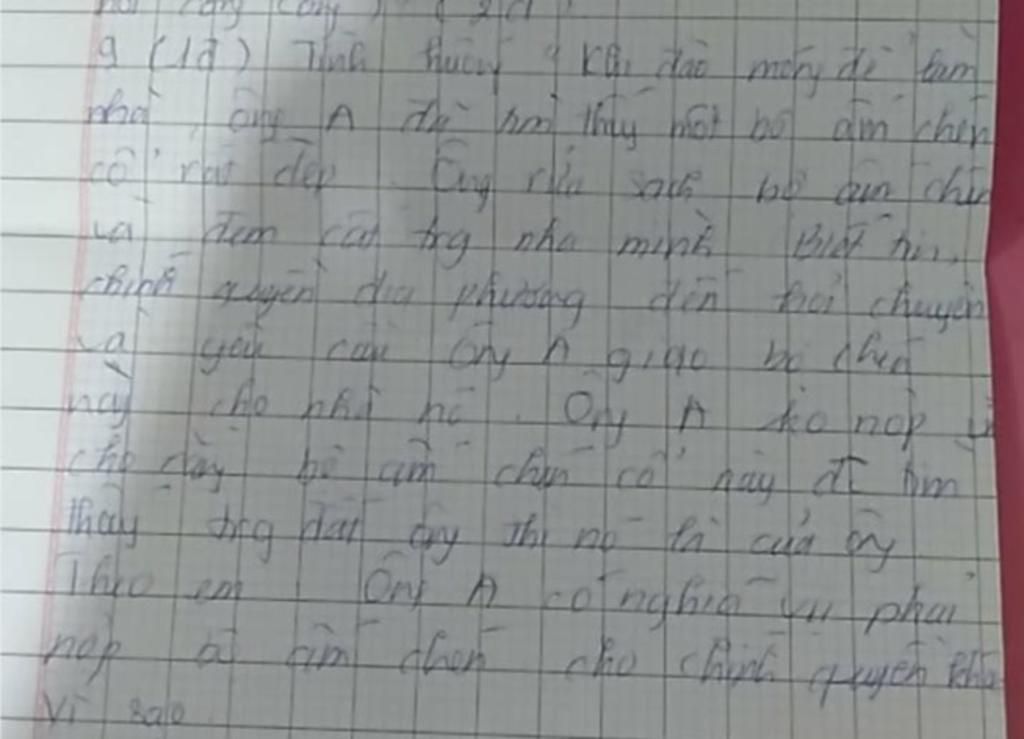 9 (1đ) Tình huống: Khi đào móng để làm
nhà, ông A đã tìm thấy một bộ ấm chén
cổ rất đẹp. Ông rửa sạch bộ ấm chén
và đem cất trg nhà mình. Biết tin,
chính quyền địa phương đến hỏi chuyện
và yêu cầu ông A giao bộ chén
này cho nhà nc. Ông A ko nộp vì
cho rằng bộ ấm chén cổ này đc tìm
thấy trg đất ông thì nó là của ông
Theo em, Ông A có nghĩa vụ phải
nộp ấm chén cho chính quyền
Vì sao